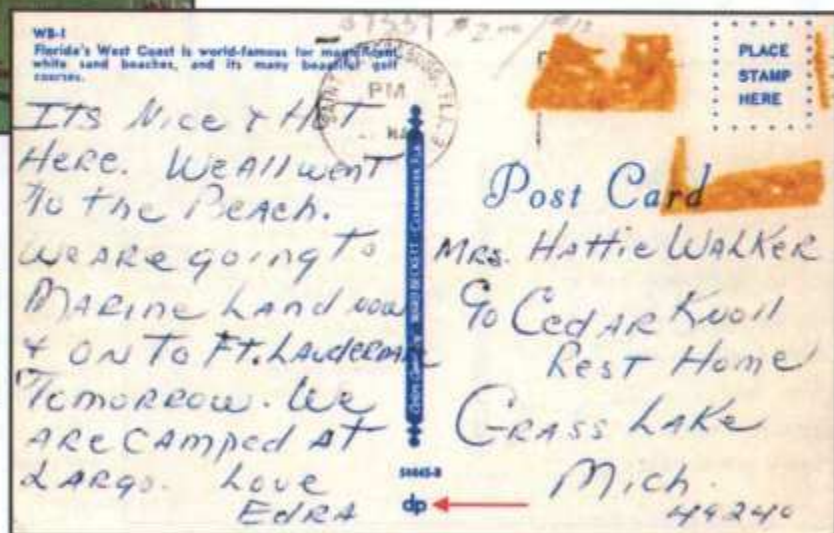 WB-1
Florida's West Coast is world-famous for magnificent
white sand beaches, and its many beautiful golf
courses.
PM
PLACE
STAMP
HERE
ITS Nice & HOT
Here. We All went
To the Beach.
We ARe going To
MARine LAnd now
& ON TO FT. LAuderdale
Tomorrow. We
ARe CAmped AT
LARgo. Love
EdRA
WARD BECKETT - CLEARWATER, FLA.
Post Card
MRs. HATTie WALKeR
c/o CedAR Knoll
Rest Home
GRASS LAKe
Mich.
49240
dp